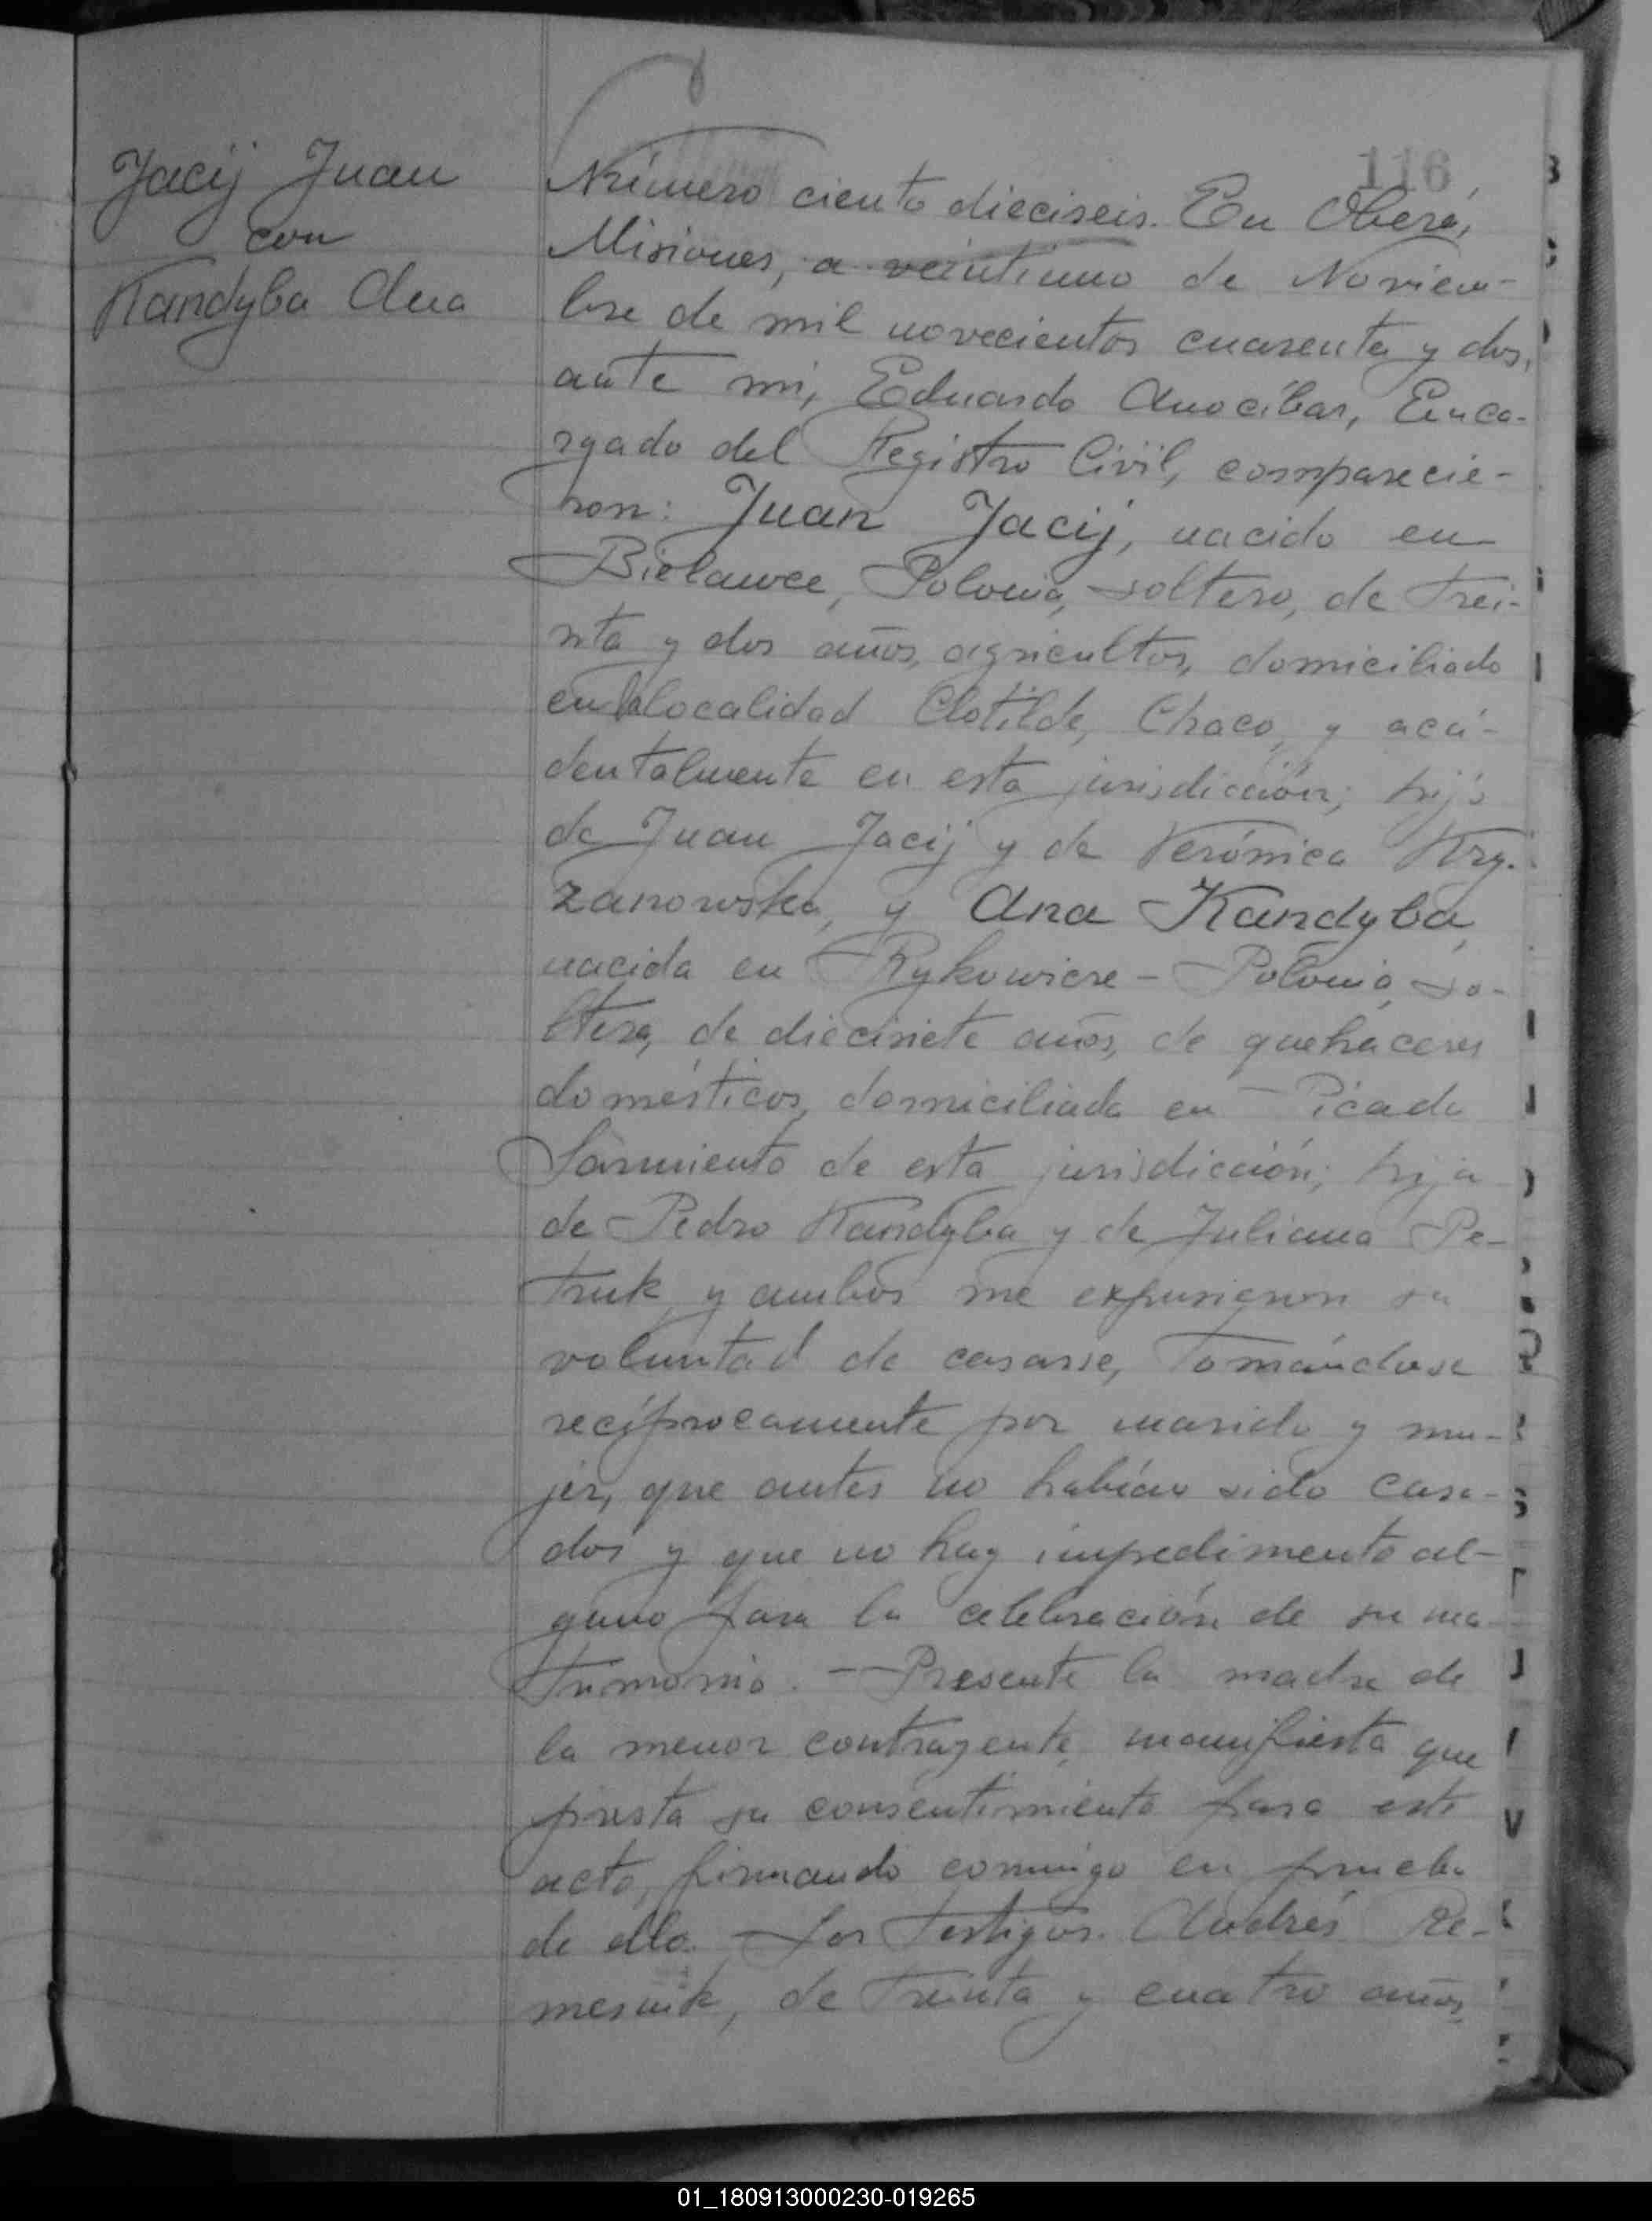 Jacij Juan
con
Kandyba Ana
116
Número ciento dieciseis. En Oberá,
Misiones, a veintiuno de Noviem-
bre de mil novecientos cuarenta y dos,
ante mi, Eduardo Anocíbar, Enca-
rgado del Registro Civil, comparecie-
ron: Juan Jacij, nacido en
Bielawce, Polonia, soltero, de trei-
nta y dos años, agricultor, domiciliado
en la localidad Clotilde, Chaco, y acci-
dentalmente en esta jurisdicción; hijo
de Juan Jacij y de Verónica Kry-
zanowska, y Ana Kandyba,
nacida en Rykowicze - Polonia, so-
ltera, de diecisiete años, de quehaceres
domésticos, domiciliada en Picada
Sarmiento de esta jurisdicción; hija
de Pedro Kandyba y de Juliana Pe-
truk y ambos me expusieron su
voluntad de casarse, tomándose
recíprocamente por marido y mu-
jer, que antes no habían sido casa-
dos y que no hay impedimento al-
guno para la celebración de su ma-
trimonio. - Presente la madre de
la menor contrayente, manifiesta que
presta su consentimiento para este
acto, firmando conmigo en prueba
de ello. Los testigos. Andrés Re-
mesnik, de treinta y cuatro años,
01_180913000230-019265